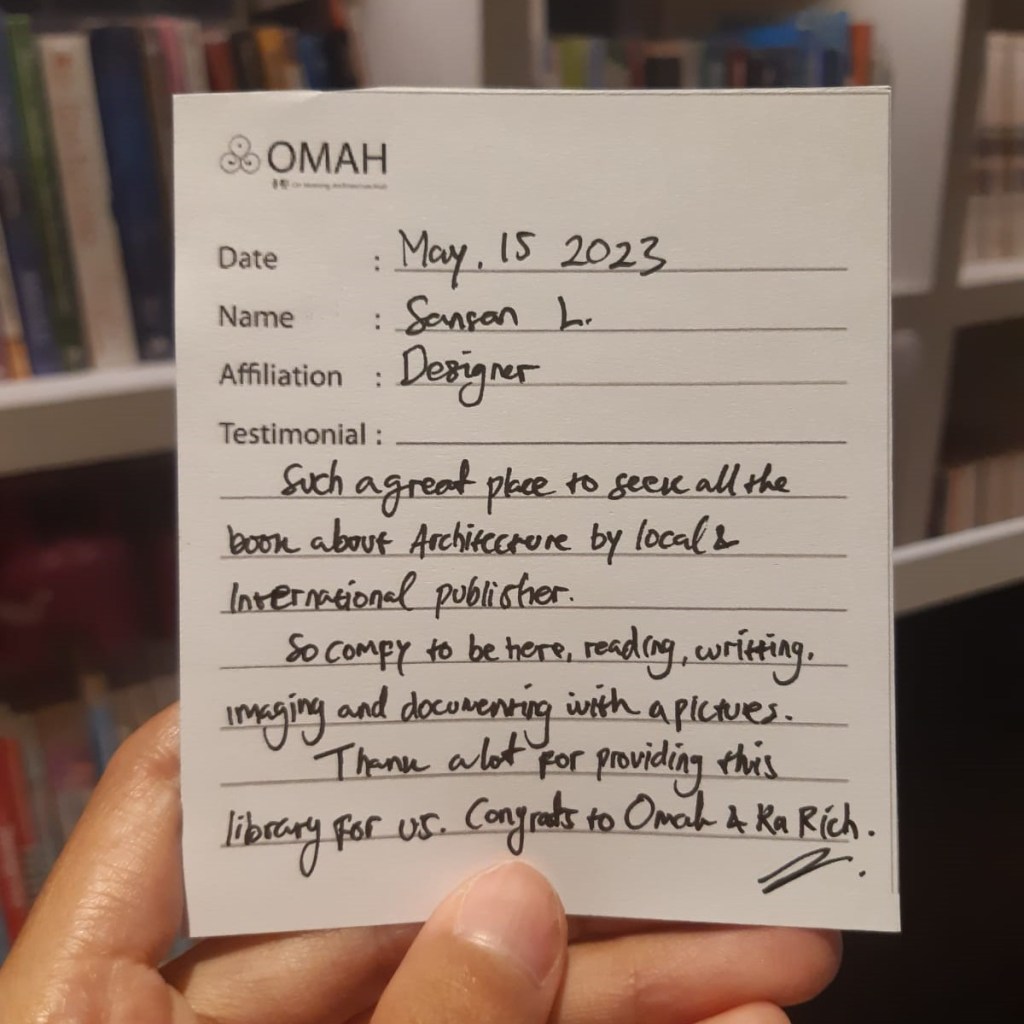 OMAH
Date : May, 15 2023
Name : Sansan L.
Affiliation : Designer
Testimonial :
Such a great place to seek all the
book about Architecture by local &
International publisher.
So compy to be here, reading, writting,
imaging and documenting with a pictues.
Thank a lot for providing this
library for us. Congrats to Omah & Ka Rich.